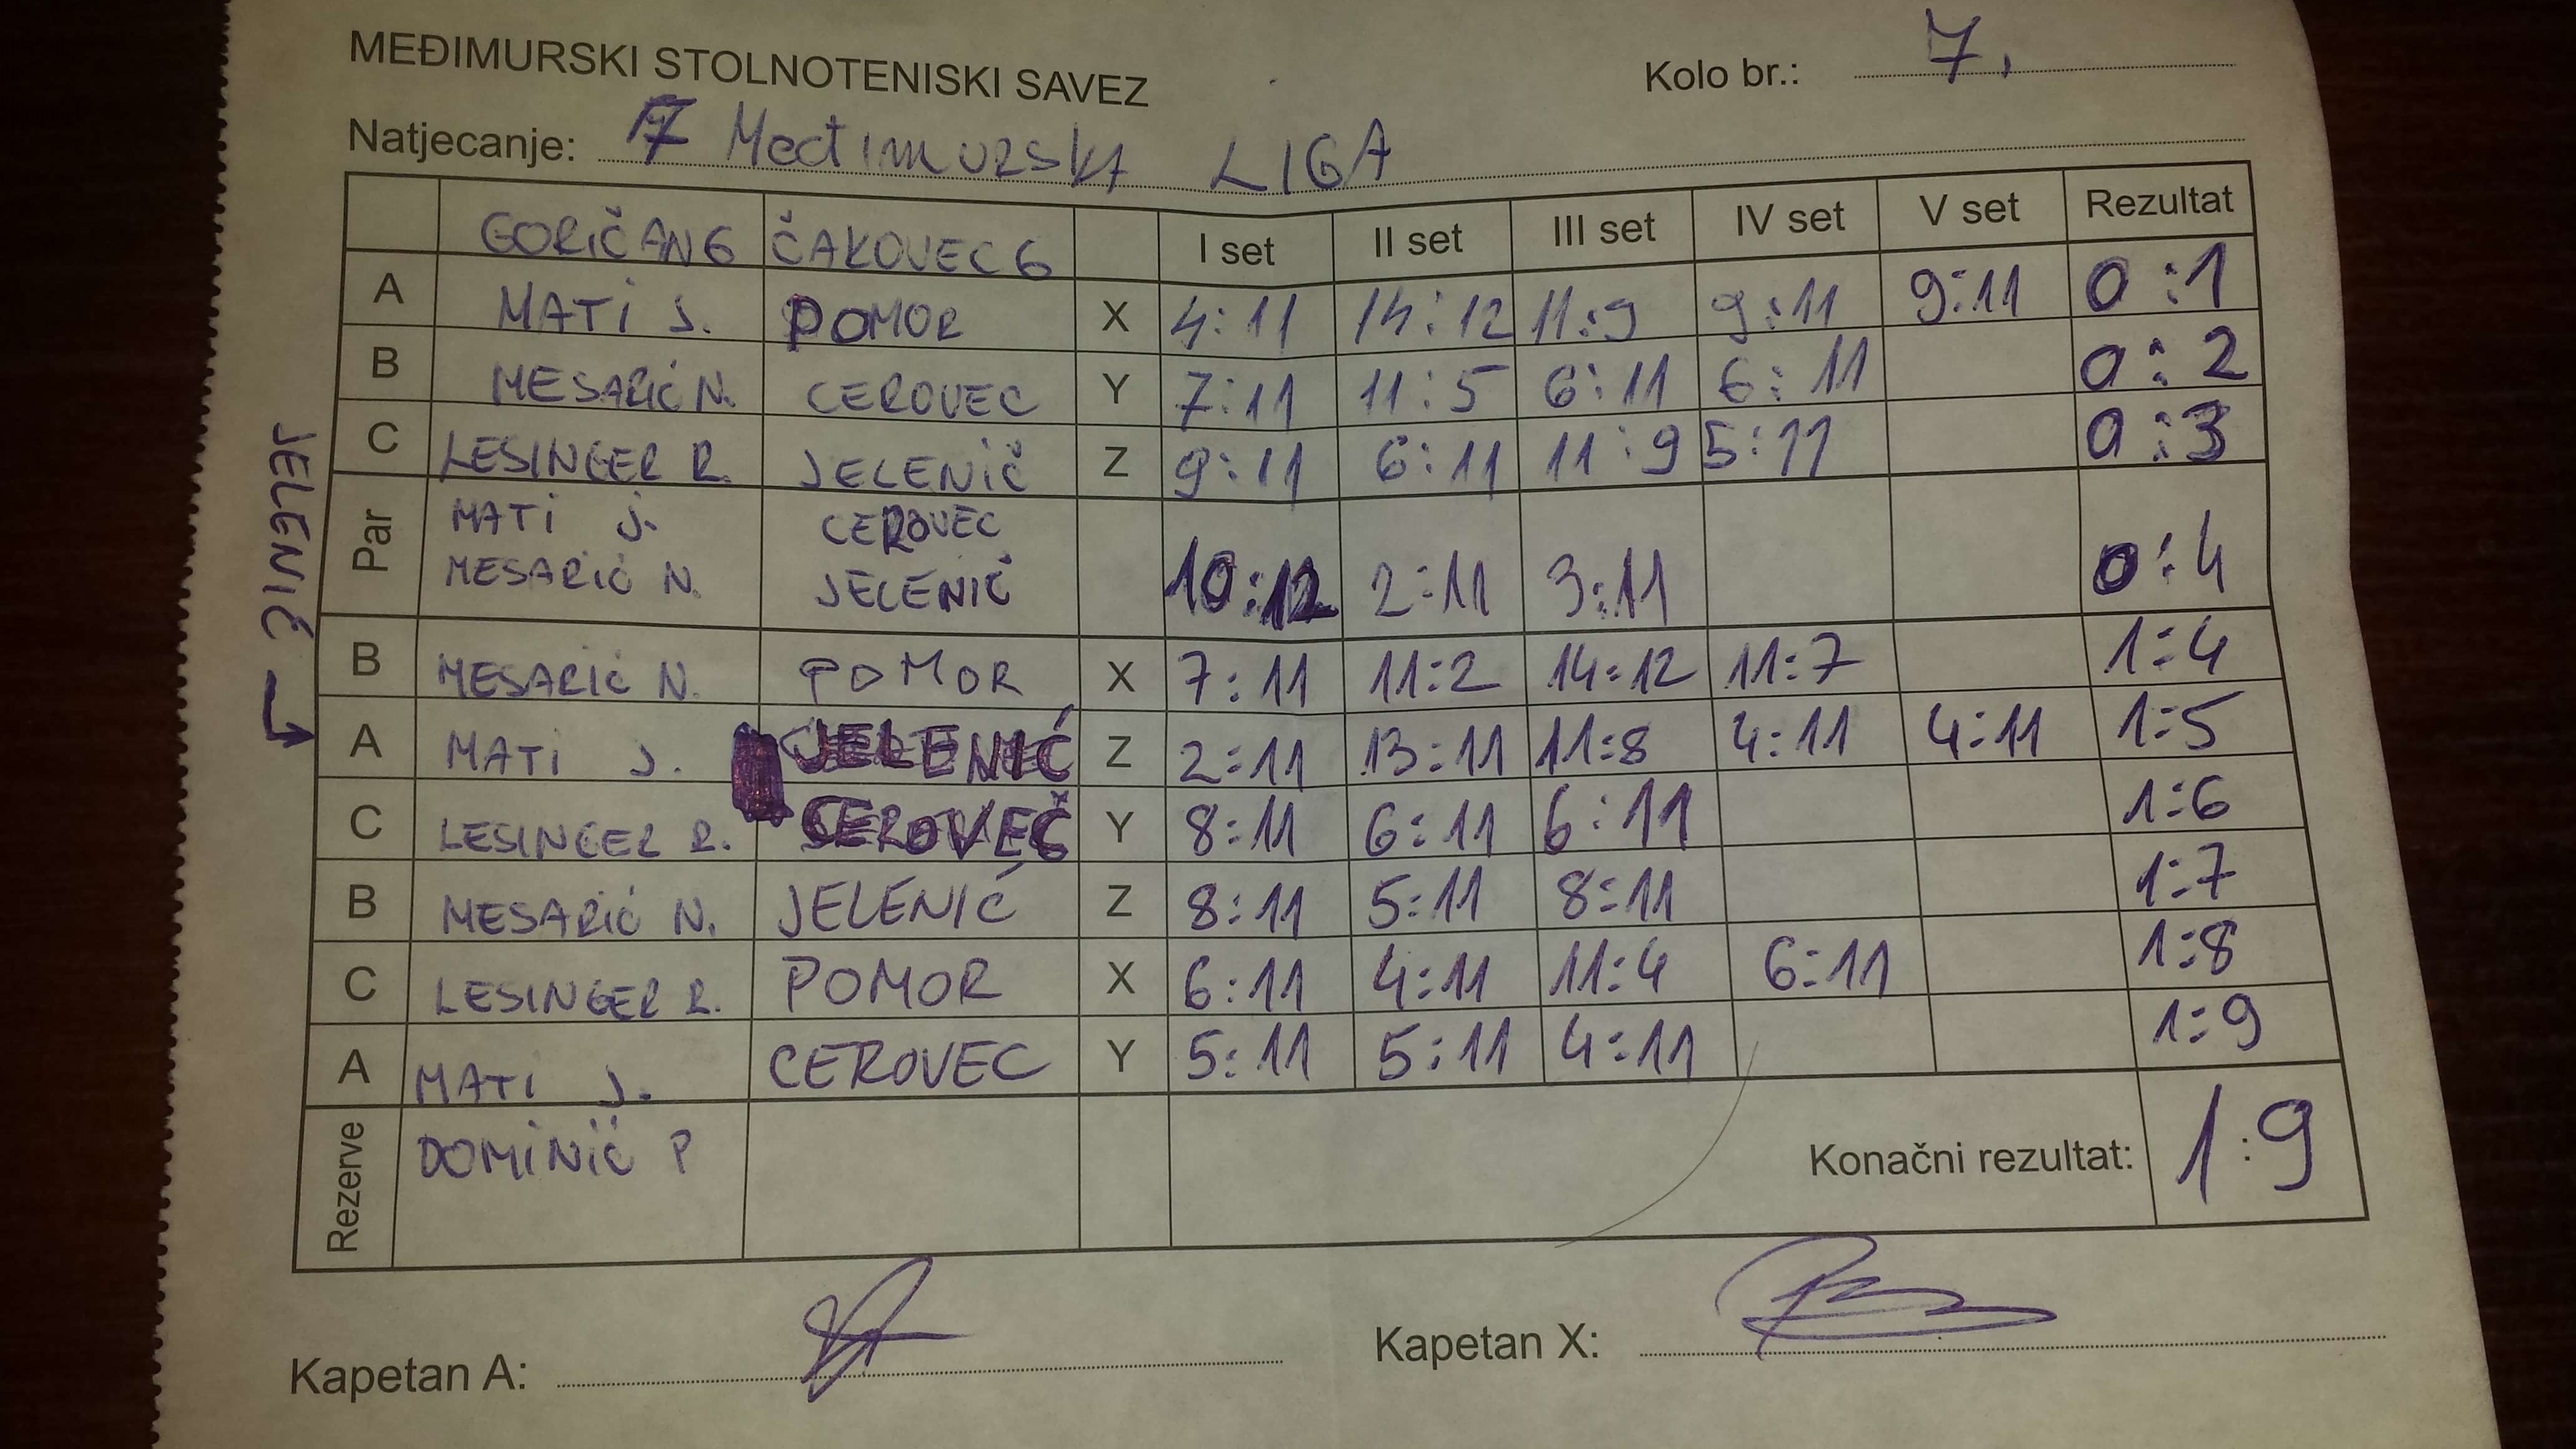 MEĐIMURSKI STOLNOTENISKI SAVEZ
Kolo br.: 7.
Natjecanje: Međimurska LIGA
GORIČAN 6 ČAKOVEC 6 I set II set III set IV set V set Rezultat
A MATi J. POMOR X 4:11 14:12 11:9 9:11 9:11 0:1
B MESARIĆ N. CEROVEC Y 7:11 11:5 6:11 6:11 0:2
C LESINGER R. JELENIČ Z 9:11 6:11 11:9 5:11 0:3
Par MATi J. CEROVEC
MESARIĆ N. JELENIĆ 10:12 2:11 3:11 0:4
B MESARIĆ N. POMOR X 7:11 11:2 14:12 11:7 1:4
JELENIĆ
A MATi J. JELENIĆ Z 2:11 13:11 11:8 4:11 4:11 1:5
C LESINGER R. CEROVEC Y 8:11 6:11 6:11 1:6
B MESARIĆ N. JELENIĆ Z 8:11 5:11 8:11 1:7
C LESINGER R. POMOR X 6:11 4:11 11:4 6:11 1:8
A MATI J. CEROVEC Y 5:11 5:11 4:11 1:9
Rezerve DOMINIĆ P Konačni rezultat: 1:9
Kapetan A:
Kapetan X: